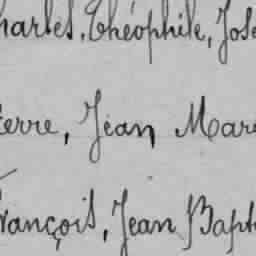 harles, Théophile, Jose
ierre, Jean Mari
rançois, Jean Bapt